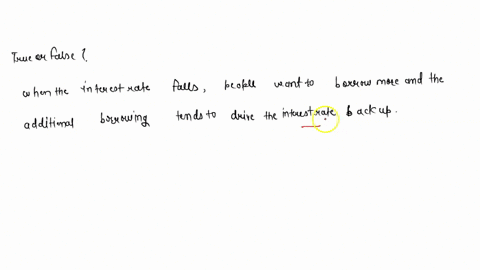 True or False {.
when the interest rate falls, people want to borrow more and the
additional borrowing tends to drive the interest rate back up.